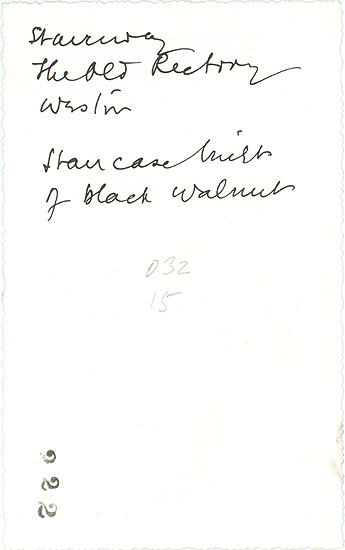 Stairway
The Old Rectory
Weston
Staircase built
of black walnut
032
15
922